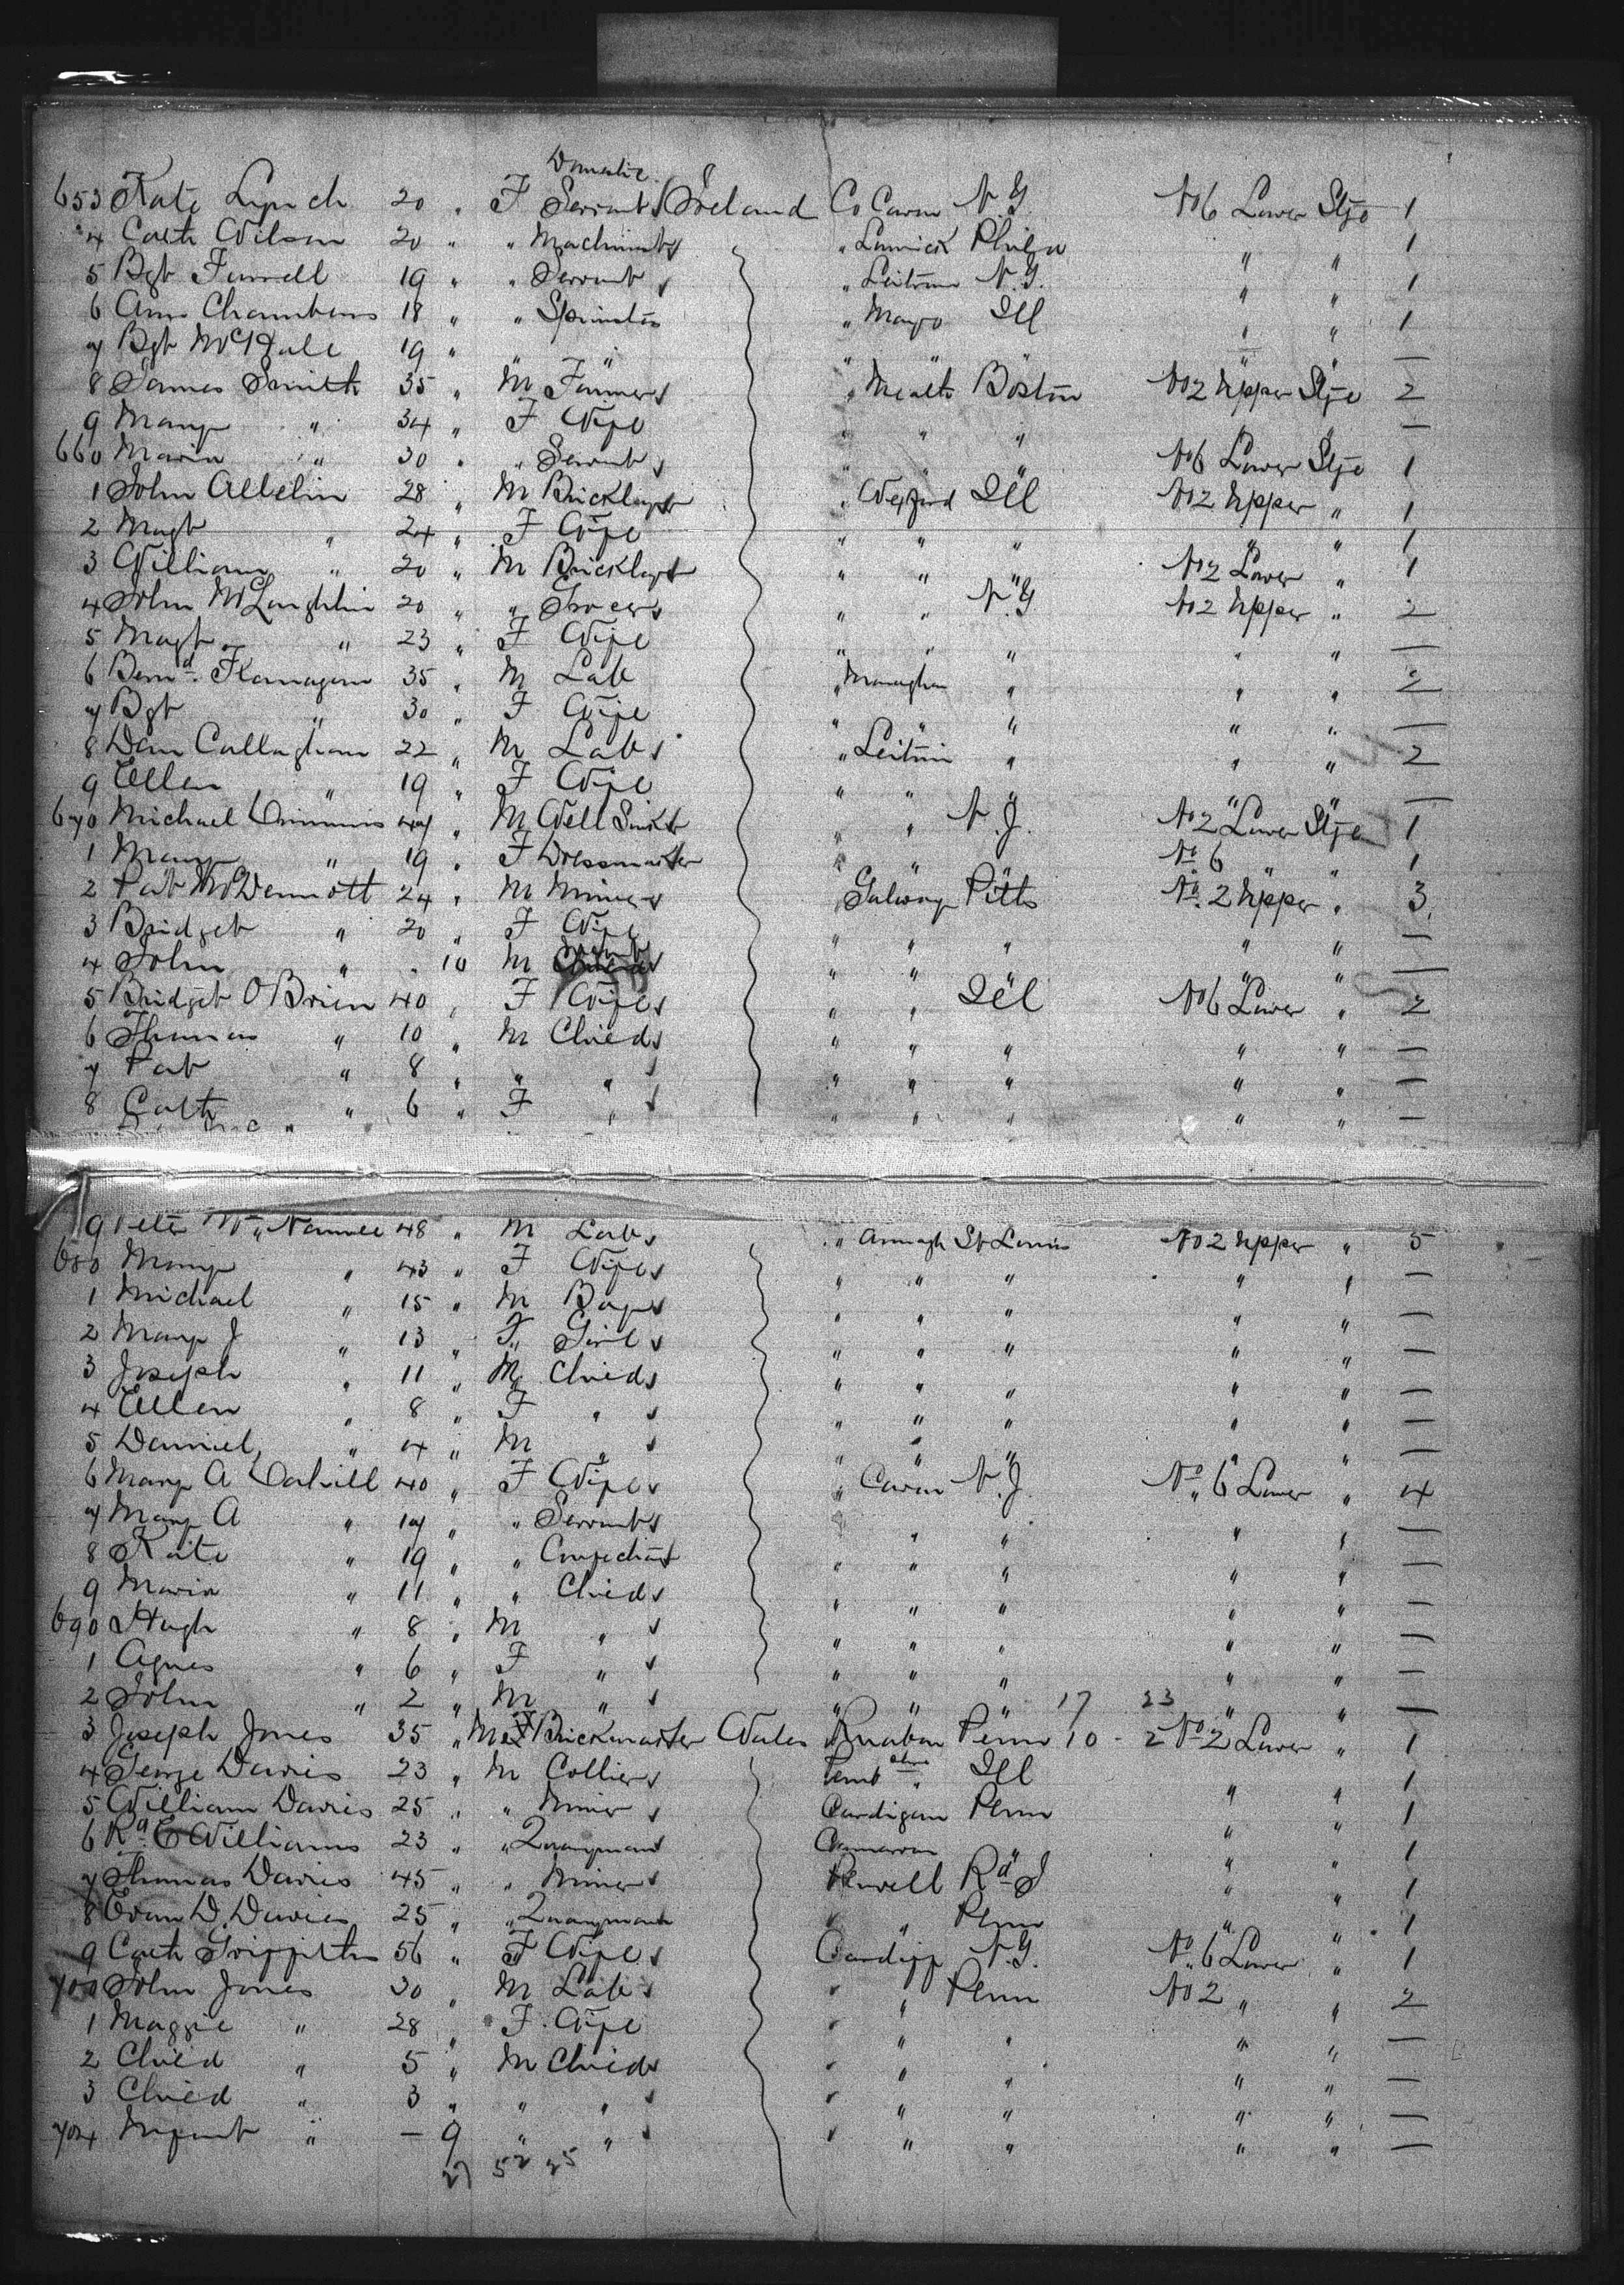 Domestic
653 Kate Lynch 20 " F Servant Ireland Co Cavan N.Y. No 6 Lower Stge 1
4 Cath Wilson 20 " " Machinist " Limrick Phila " " 1
5 Bgt Farrell 19 " " Servant " Leitrim N.Y. " " 1
6 Ann Chambers 18 " " Spinster " Mayo Ill " " 1
7 Bgt McHale 19 " " " " " " " " —
8 James Smith 35 " M Farmer " Meath Boston No 2 Upper Stge 2
9 Mary " 34 " F Wife " " " " " —
660 Maria " 30 " " Servant " " " No 6 Lower Stge 1
1 John 28 " M Bricklayr " Wexford Ill No 2 Upper " 1
2 Magt " 24 " F Wife " " " " " 1
3 William " 20 " M Bricklayr " " " No 2 Lower " 1
4 John McLoughlin 20 " " Grocer " " N.Y No 2 Upper " 2
5 Magt " 23 " F Wife " " " " " —
6 Bernd. Flanagan 35 " M Lab " Monaghan " " " 2
7 Bgt " 30 " F Wife " " " " " —
8 Dan Callaghan 22 " M Lab " Leitrim " " " 2
9 Ellen " 19 " F Wife " " " " " —
670 Michael 47 " M Well Sinkr " " N.J. No 2 Lower Stge 1
1 Mary " 19 " F Dressmaker " " " No 6 " " 1
2 Pat McDermott 24 " M Miner Galway Pitts No. 2 Upper " 3
3 Bridget " 20 " F Wife " " " " " —
4 John " . 10 M " " " " " —
5 Bridget O'Brien 40 " F Wife " " Ill No 6 Lower " 2
6 Thomas " 10 " M Child " " " " " —
7 Pat " 8 " " " " " " " " —
8 Cath " 6 " F " " " " " " —
9 Peter Mc Namee 48 " M Lab " Armagh St Louis No 2 Upper " 5
680 Mary " 43 " F Wife " " " " " —
1 Michael " 15 " M Boy " " " " " —
2 Mary J " 13 " F Girl " " " " " —
3 Joseph " 11 " M Child " " " " " —
4 Ellen " 8 " F " " " " " " —
5 Daniel " 4 " M " " " " " " —
6 Mary A Cahill 40 " F Wife " Cavan N.J. No 6 Lower " 4
7 Mary A " 17 " " Servant " " " " " —
8 Kate " 19 " " " " " " " —
9 Maria " 11 " " Child " " " " " —
690 Hugh " 8 " M " " " " " " —
1 Agnes " 6 " F " " " " " " —
2 John " 2 " M " " " " 17 23 " " —
3 Joseph Jones 35 " M Brickmaker Wales Ruabon Penn 10 - 2 No 2 Lower " 1
4 George Davies 23 " M Collier Pemb " Ill " " 1
5 William Davies 25 " " Miner Cardigan Penn " " 1
6 Rd E Williams 23 " " Quarryman Carnarvon " " " 1
7 Thomas Davies 45 " " Miner " " 1
8 Evan D. Davies 25 " " Quarryman " " Penn " " 1
9 Cath Griffiths 56 " F Wife Cardiff N.Y. No 6 Lower " 1
700 John Jones 30 " M Lab " " Penn No 2 " " 2
1 Maggie " 28 " F Wife " " " " " —
2 Child " 5 " M Child " " " " " —
3 Child " 3 " " " " " " " " —
704 Infant " — 9 " " " " " " " —
27 52 25